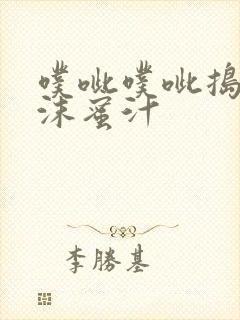 噗呲噗呲搗
沫蜜汁
李勝基